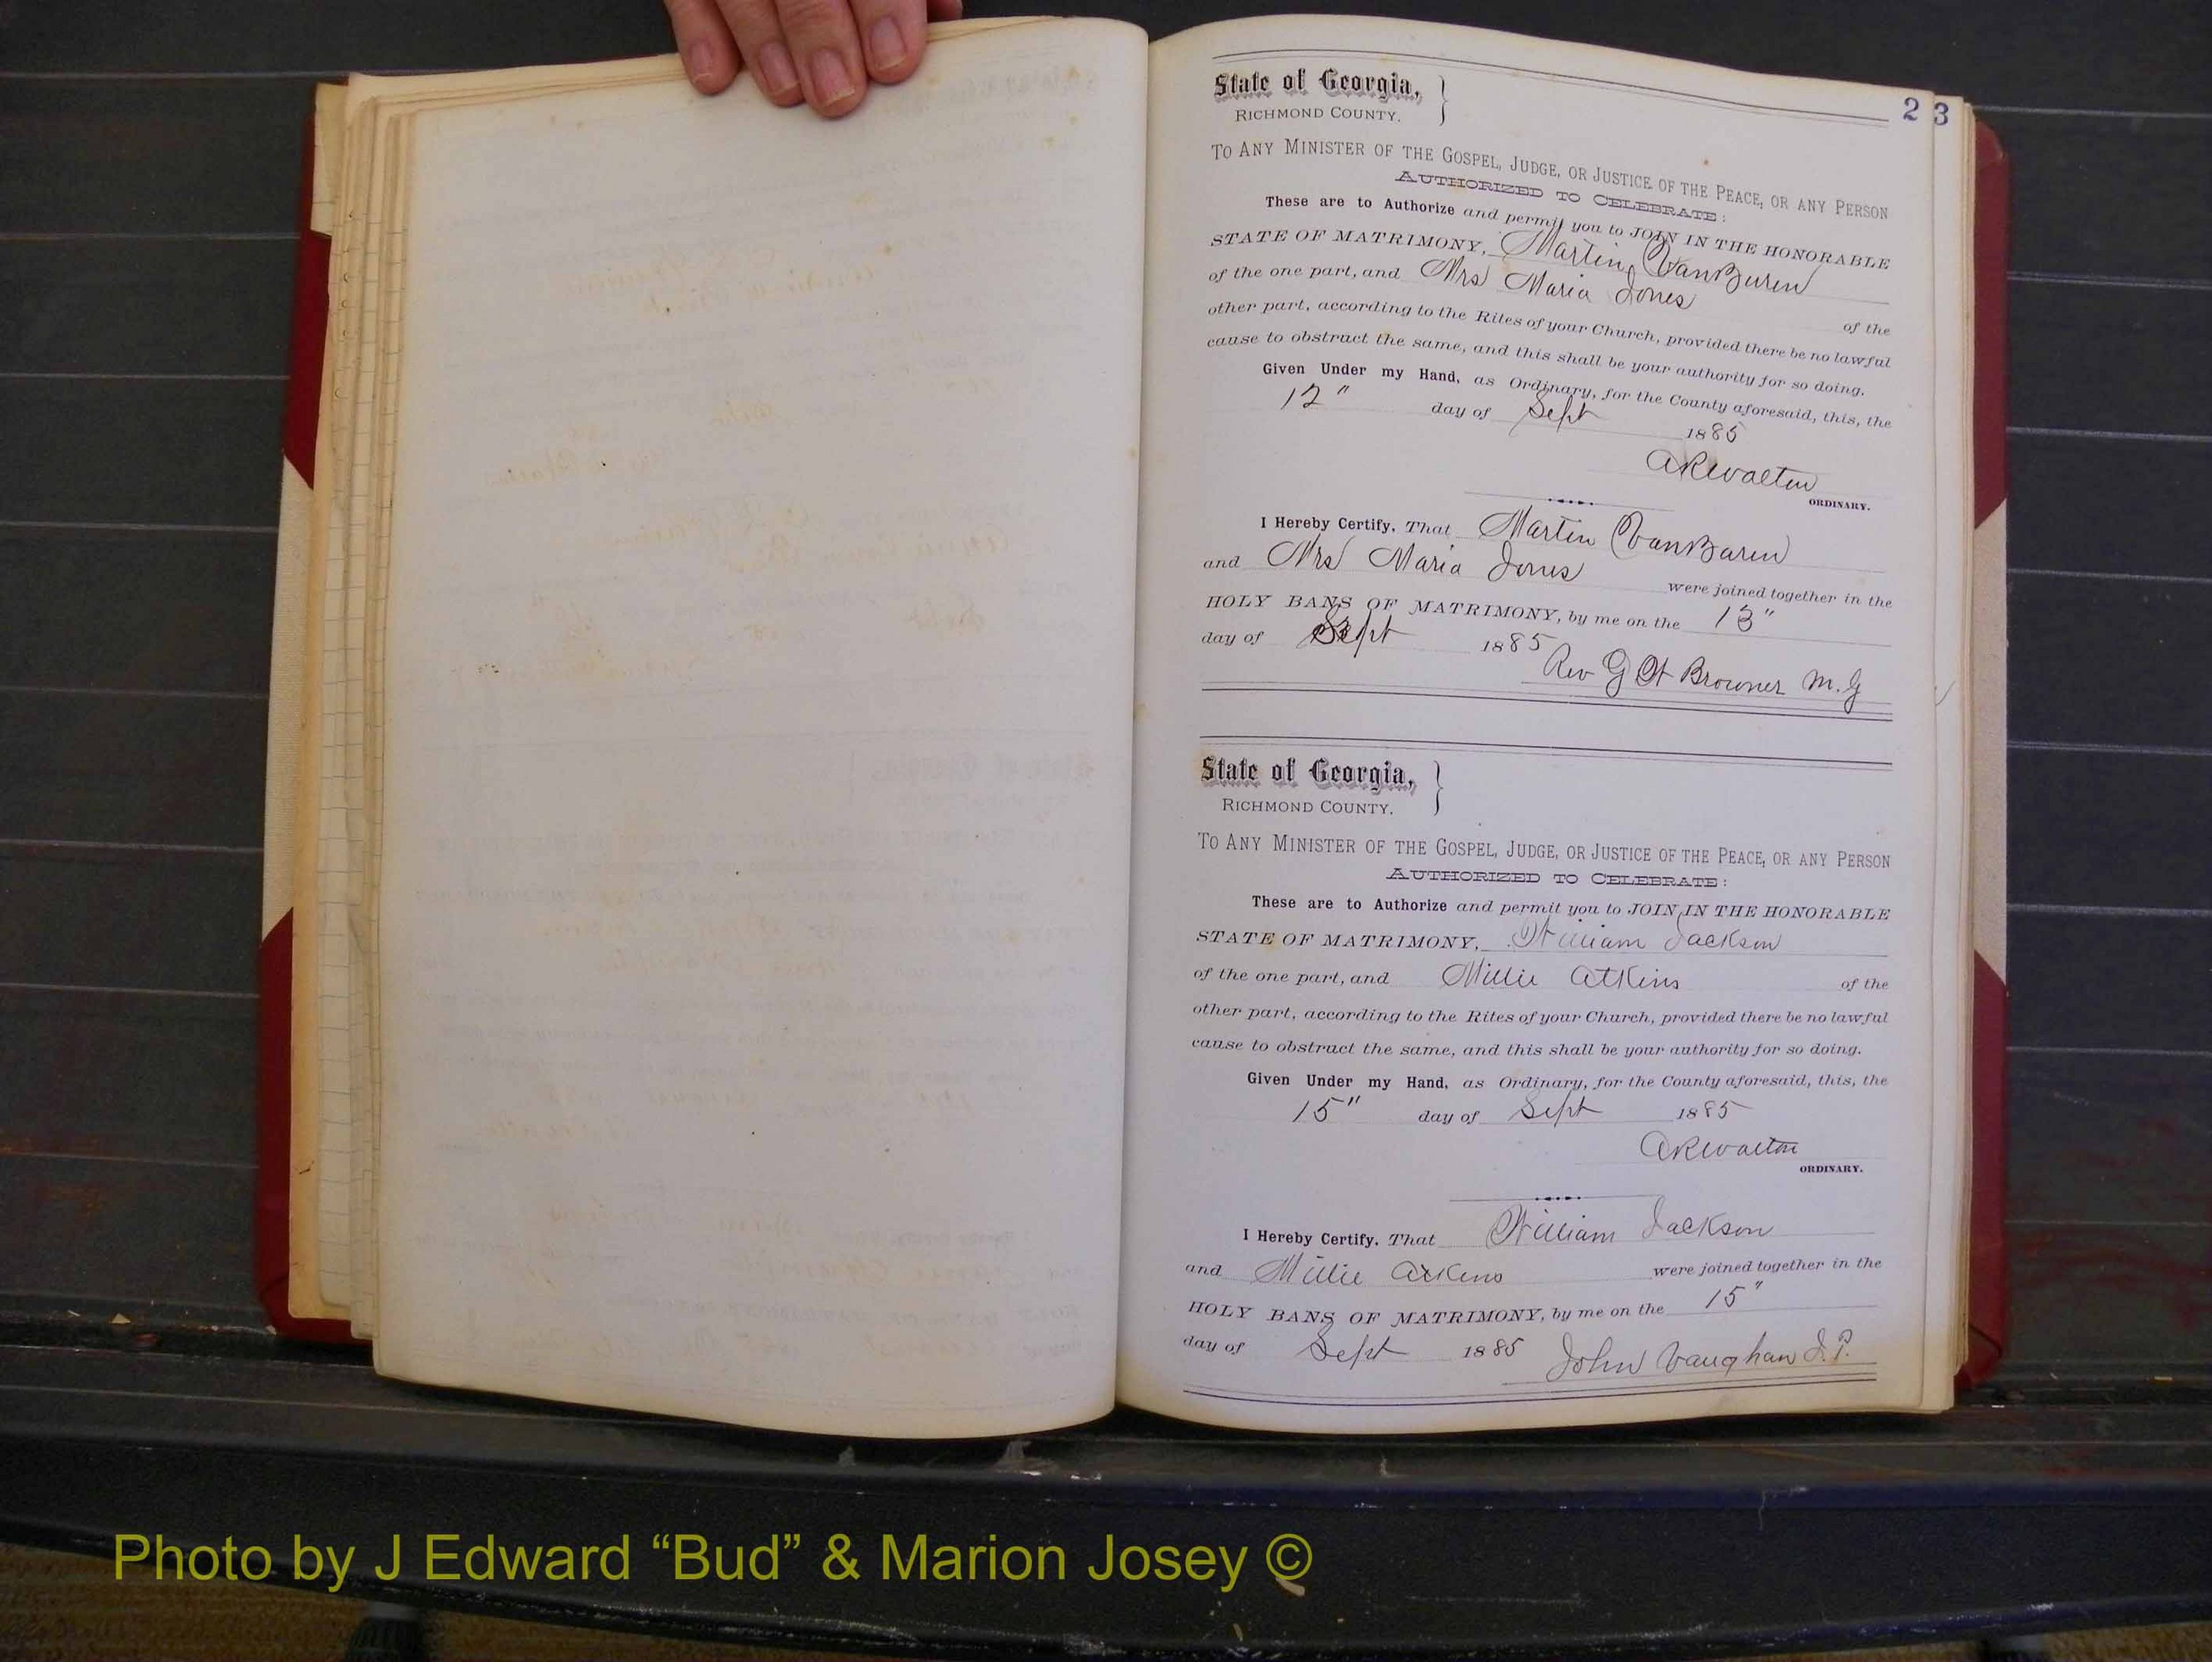 2 3
State of Georgia,
RICHMOND COUNTY.
TO ANY MINISTER OF THE GOSPEL, JUDGE, OR JUSTICE OF THE PEACE, OR ANY PERSON
AUTHORIZED TO CELEBRATE:
These are to Authorize and permit you to JOIN IN THE HONORABLE
STATE OF MATRIMONY, Martin VanBuren
of the one part, and Mrs Maria Jones of the
other part, according to the Rites of your Church, provided there be no lawful
cause to obstruct the same, and this shall be your authority for so doing.
Given Under my Hand, as Ordinary, for the County aforesaid, this, the
12" day of Sept 1885
A R Walton
ORDINARY.
I Hereby Certify, That Martin VanBuren
and Mrs Maria Jones were joined together in the
HOLY BANS OF MATRIMONY, by me on the 13"
day of Sept 1885
Rev G Browner M.G
State of Georgia,
RICHMOND COUNTY.
TO ANY MINISTER OF THE GOSPEL, JUDGE, OR JUSTICE OF THE PEACE, OR ANY PERSON
AUTHORIZED TO CELEBRATE:
These are to Authorize and permit you to JOIN IN THE HONORABLE
STATE OF MATRIMONY, William Jackson
of the one part, and Millie Atkins of the
other part, according to the Rites of your Church, provided there be no lawful
cause to obstruct the same, and this shall be your authority for so doing.
Given Under my Hand, as Ordinary, for the County aforesaid, this, the
15" day of Sept 1885
A R Walton
ORDINARY.
I Hereby Certify, That William Jackson
and Millie Atkins were joined together in the
HOLY BANS OF MATRIMONY, by me on the 15"
day of Sept 1885 John Vaughan J.P.
Photo by J Edward “Bud” & Marion Josey ©